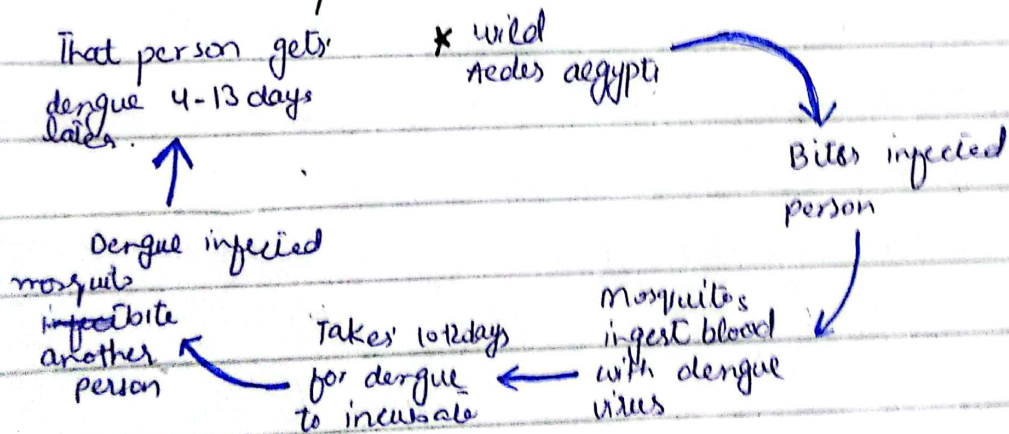 * wild
Aedes aegypti
Bites infected
person
Mosquitos
ingest blood
with dengue
virus
Takes 10 12 days
for dengue
to incubate
Dengue infected
mosquito
infect bite
another
person
That person gets
dengue 4-13 days
later.